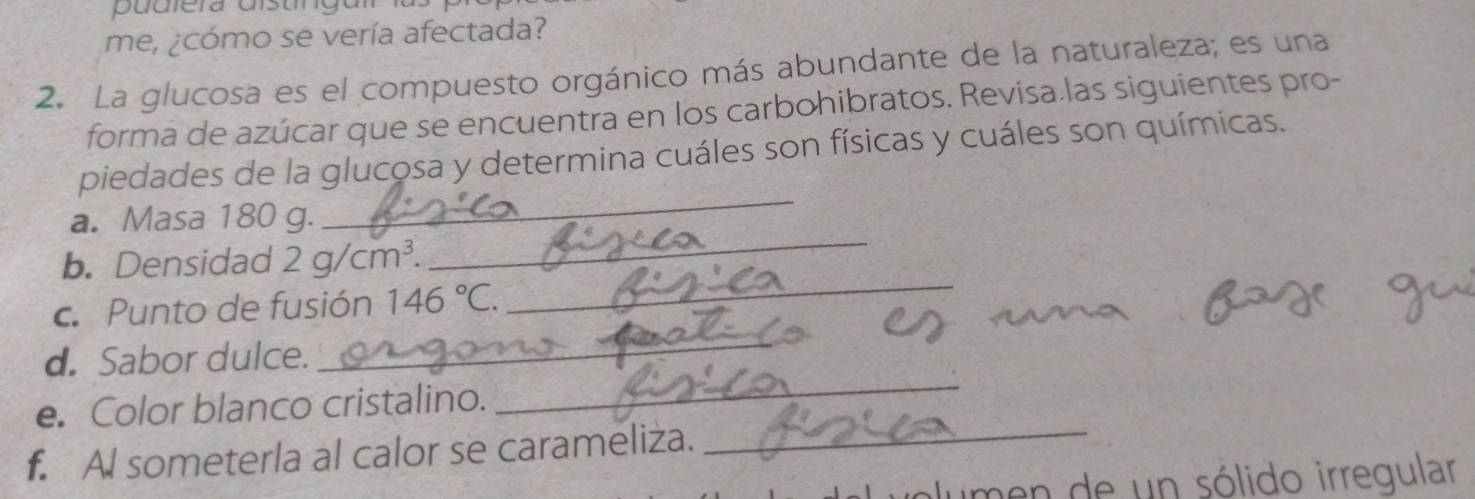 me, ¿cómo se vería afectada?
2. La glucosa es el compuesto orgánico más abundante de la naturaleza; es una
forma de azúcar que se encuentra en los carbohibratos. Revisa las siguientes pro-
piedades de la glucosa y determina cuáles son físicas y cuáles son químicas.
a. Masa 180 g. fisica
b. Densidad 2 g/cm³. fisica
c. Punto de fusión 146 °C. fisica
d. Sabor dulce. es una
e. Color blanco cristalino. fisica
f. Al someterla al calor se carameliza. fisica
volumen de un sólido irregular